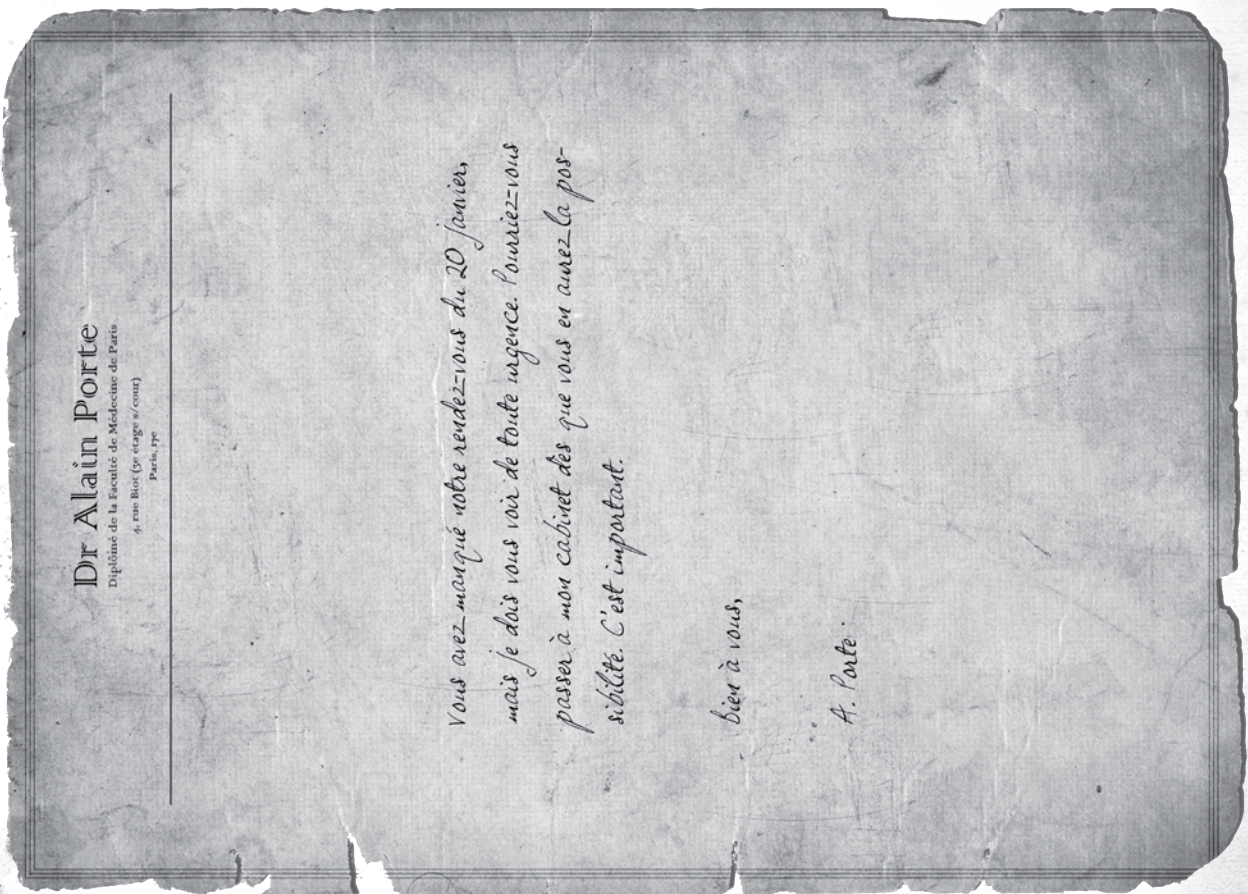 Dr Alain Porte
Diplômé de la Faculté de Médecine de Paris
4, rue Biot (3e étage s/cour)
Paris, 17e
Vous avez manqué notre rendez-vous du 20 janvier,
mais je dois vous voir de toute urgence. Pourriez-vous
passer à mon cabinet dès que vous en aurez la pos-
sibilité. C'est important.
Bien à vous,
A. Porte